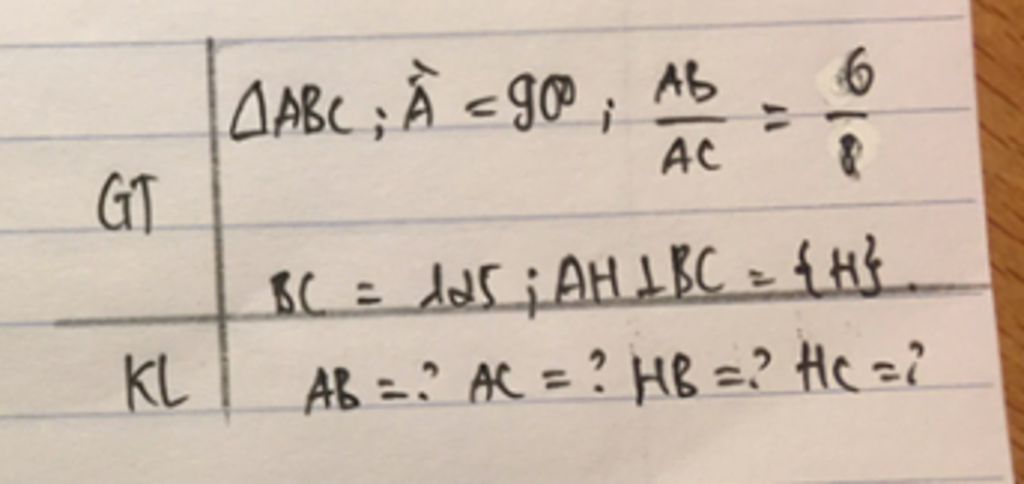 ΔABC ; Â = 90° ; AB/AC = 6/8
GT
BC = 125 ; AH ⊥ BC = {H}.
KL AB = ? AC = ? HB = ? HC = ?